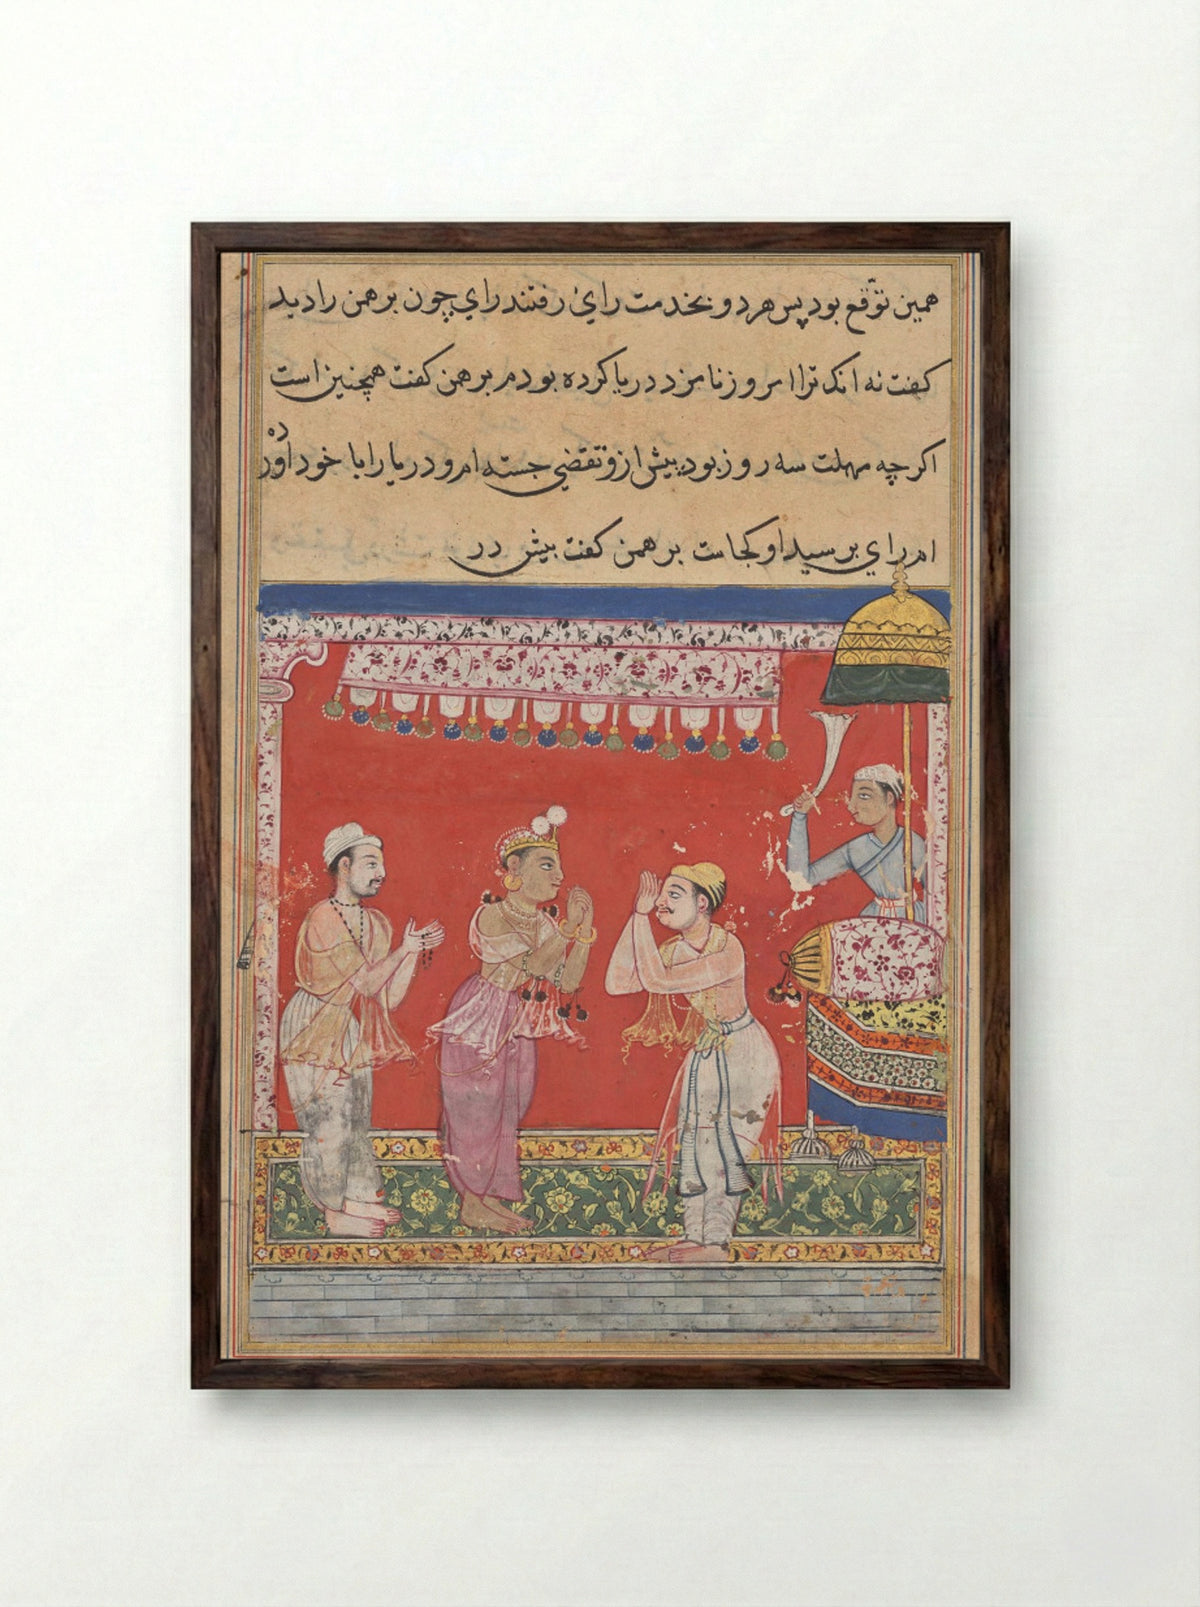 همین توقّع بود پس هر دو بخدمت رای رفتند رای چون برهمن را دید
کفت نه انک ترا امروز نامزد دریا کرده بودم برهمن کفت همچنین است
اکرچه مهلت سه روز بود بیش ازو تقضی جسته ام و دریا را با خود اورده
ام رای برسید او کجاست برهمن کفت بیش در